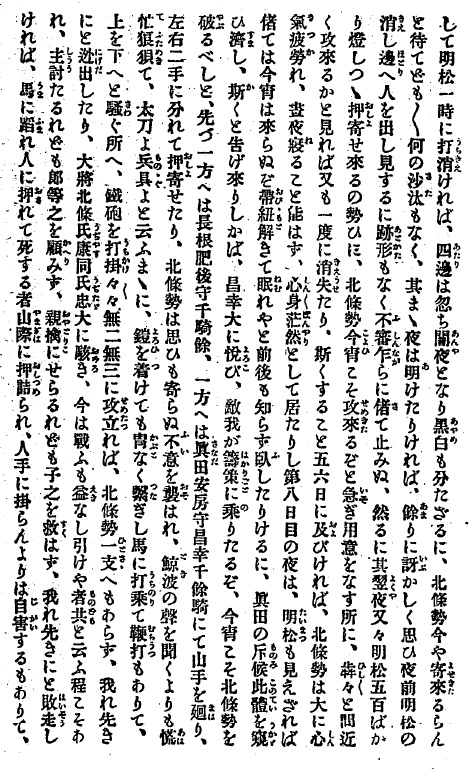 して明松一時に打消ければ、四邊は忽ち闇夜となり黑白も分たざるに、北條勢今や寄來るらん
と待てども〳〵何の沙汰もなく、其まゝ夜は明けたりければ、餘りに訝かしく思ひ夜前明松の
消し邊へ人を出し見するに跡形もなく不審乍らに偖て止みぬ、然るに其翌夜又々明松五百ばか
り燈しつゝ押寄せ來るの勢ひに、北條勢今宵こそ攻來るぞと急ぎ用意をなす所に、犇々と間近
く攻來るかと見れば又も一度に消失たり、斯くすること五六日に及びければ、北條勢は大に心
氣疲勞れ、晝夜寢ること能はず、心身茫然として居たりし第八日目の夜は、明松も見えざれば
偖ては今宵は來らぬぞ帶紐解きて眠れやと前後も知らず臥したりけるに、眞田の斥候此體を窺
ひ濟し、斯くと告げ來りしかば、昌幸大に悅び、敵我が籌策に乘りたるぞ、今宵こそ北條勢を
破るべしと、先づ一方へは長根肥後守千騎餘、一方へは眞田安房守昌幸千餘騎にて山手を廻り、
左右二手に分れて押寄せたり、北條勢は思ひも寄らぬ不意を襲はれ、鯨波の聲を聞くよりも慌
忙狼狽て、太刀よ兵具よと云ふまゝに、鎧を着けても冑なく繫ぎし馬に打乘て鞭打もありて、
上を下へと騷ぐ所へ、鐵砲を打掛々々無二無三に攻立れば、北條勢一支へもあらず、我れ先き
にと迯出したり、大將北條氏康同氏忠大に駭き、今は戰ふも益なし引けや者共と云ふ程こそあ
れ、主討たるれども郎等之を顧みず、親擒にせらるれども子之を救はず、我れ先きにと敗走し
ければ、馬に蹈れ人に押れて死する者山際に押詰られ、人手に掛らんよりは自害するもありて、